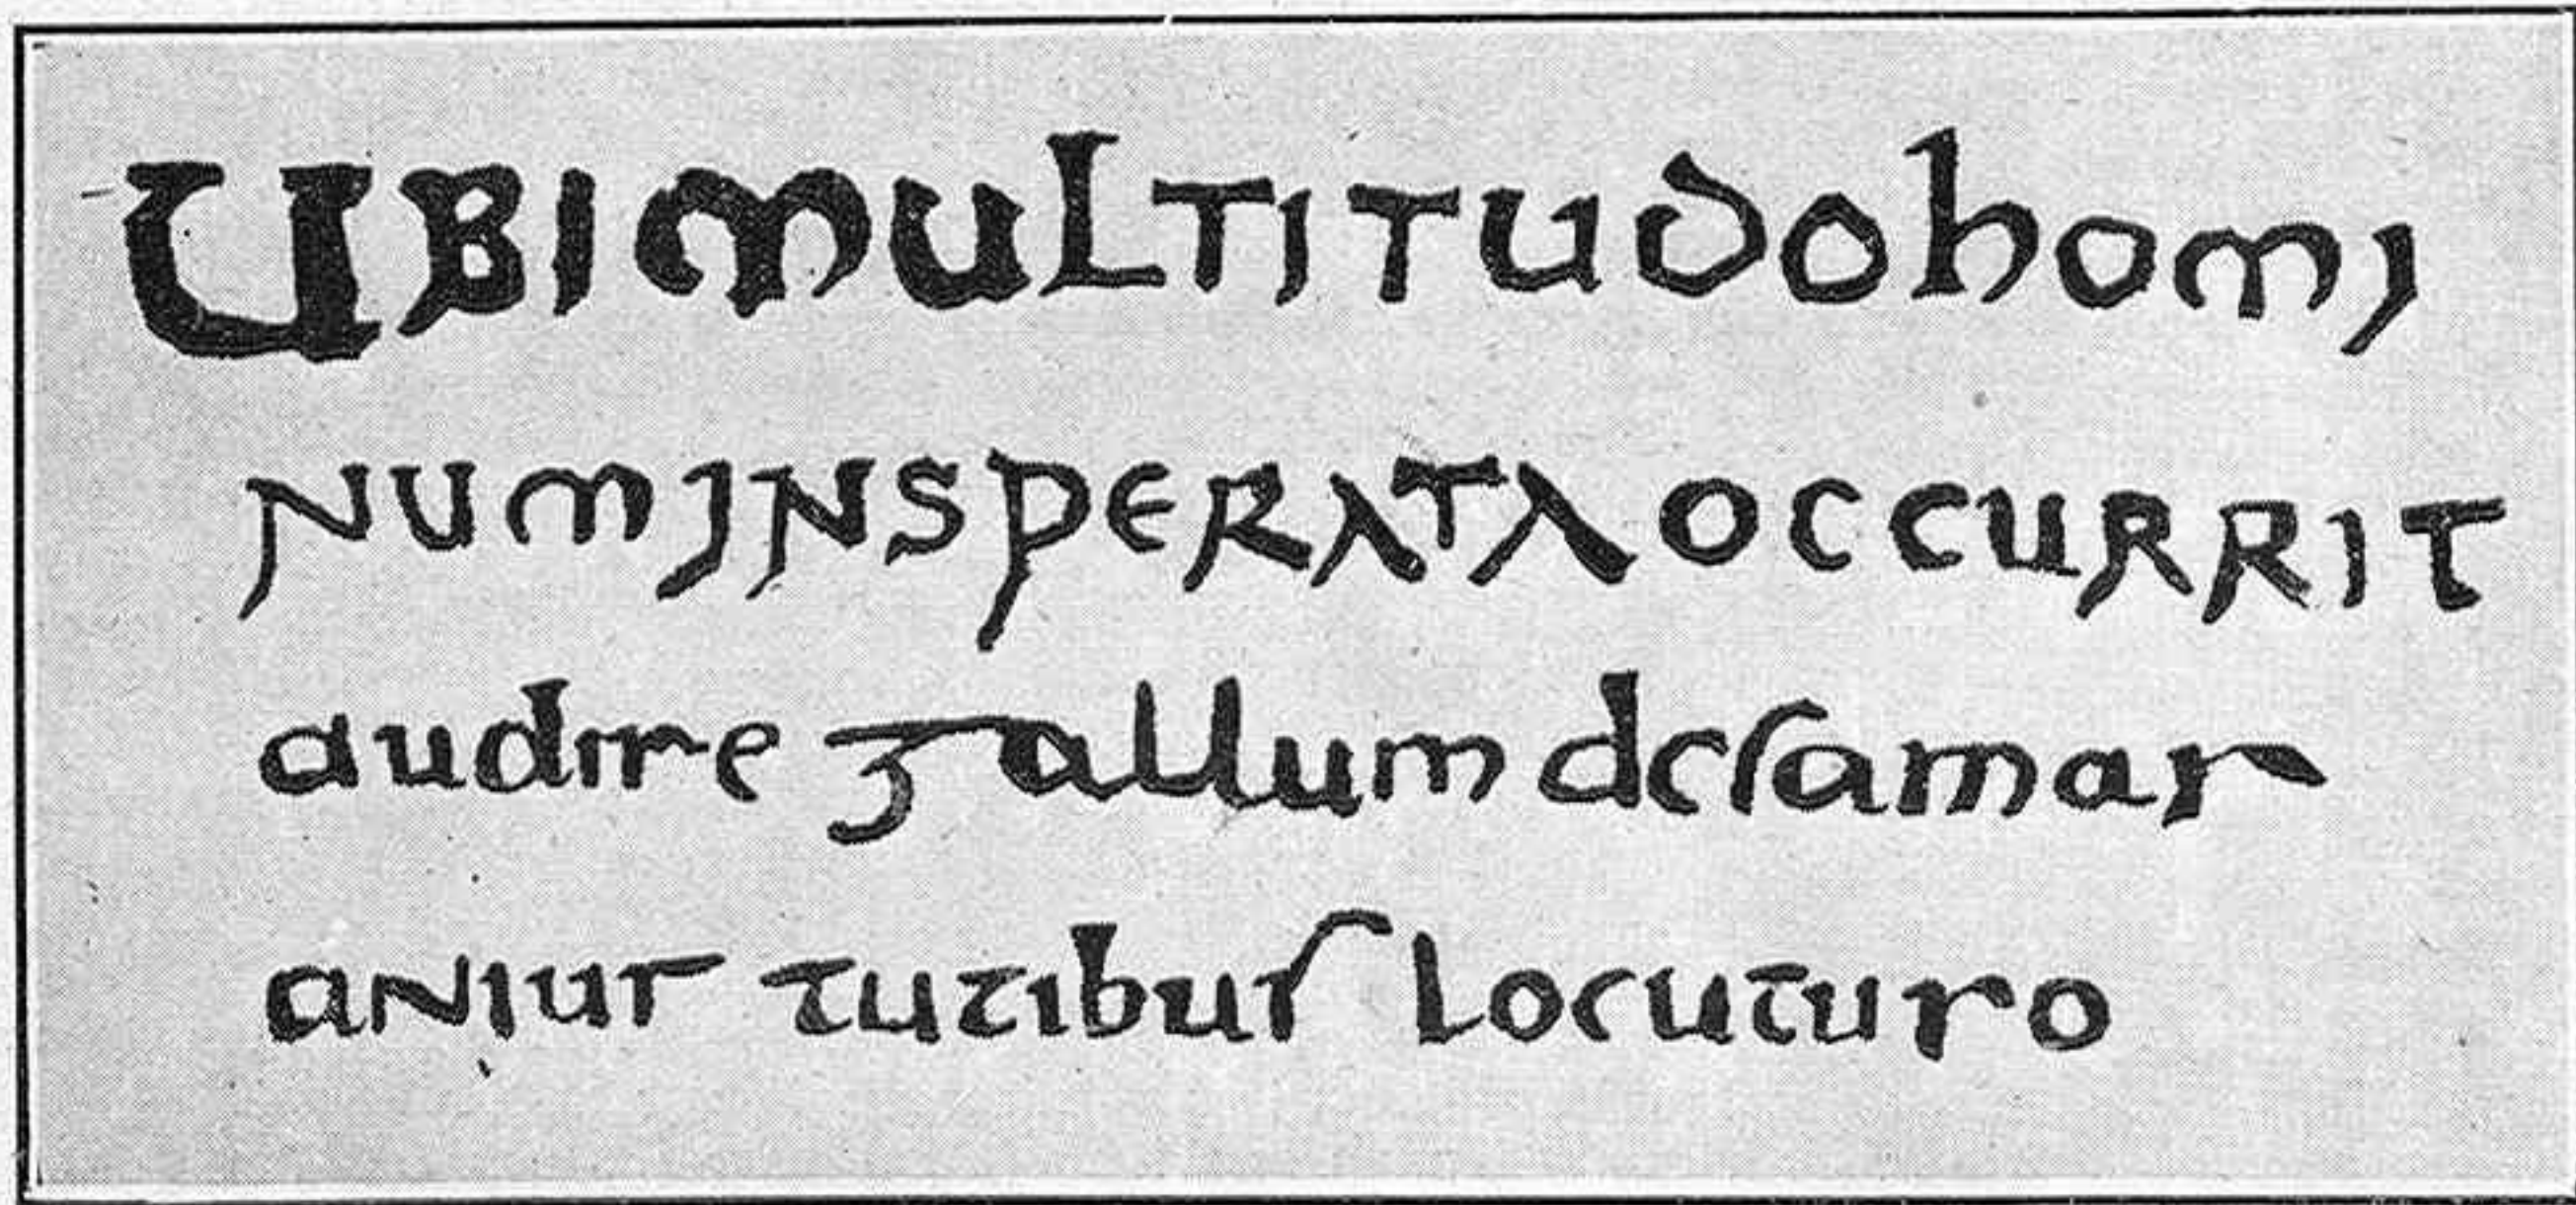 UBI MULTITUDO HOMI
NUM INSPERATA OCCURRIT
audire gallum de samar
aniur tutibus locuturo